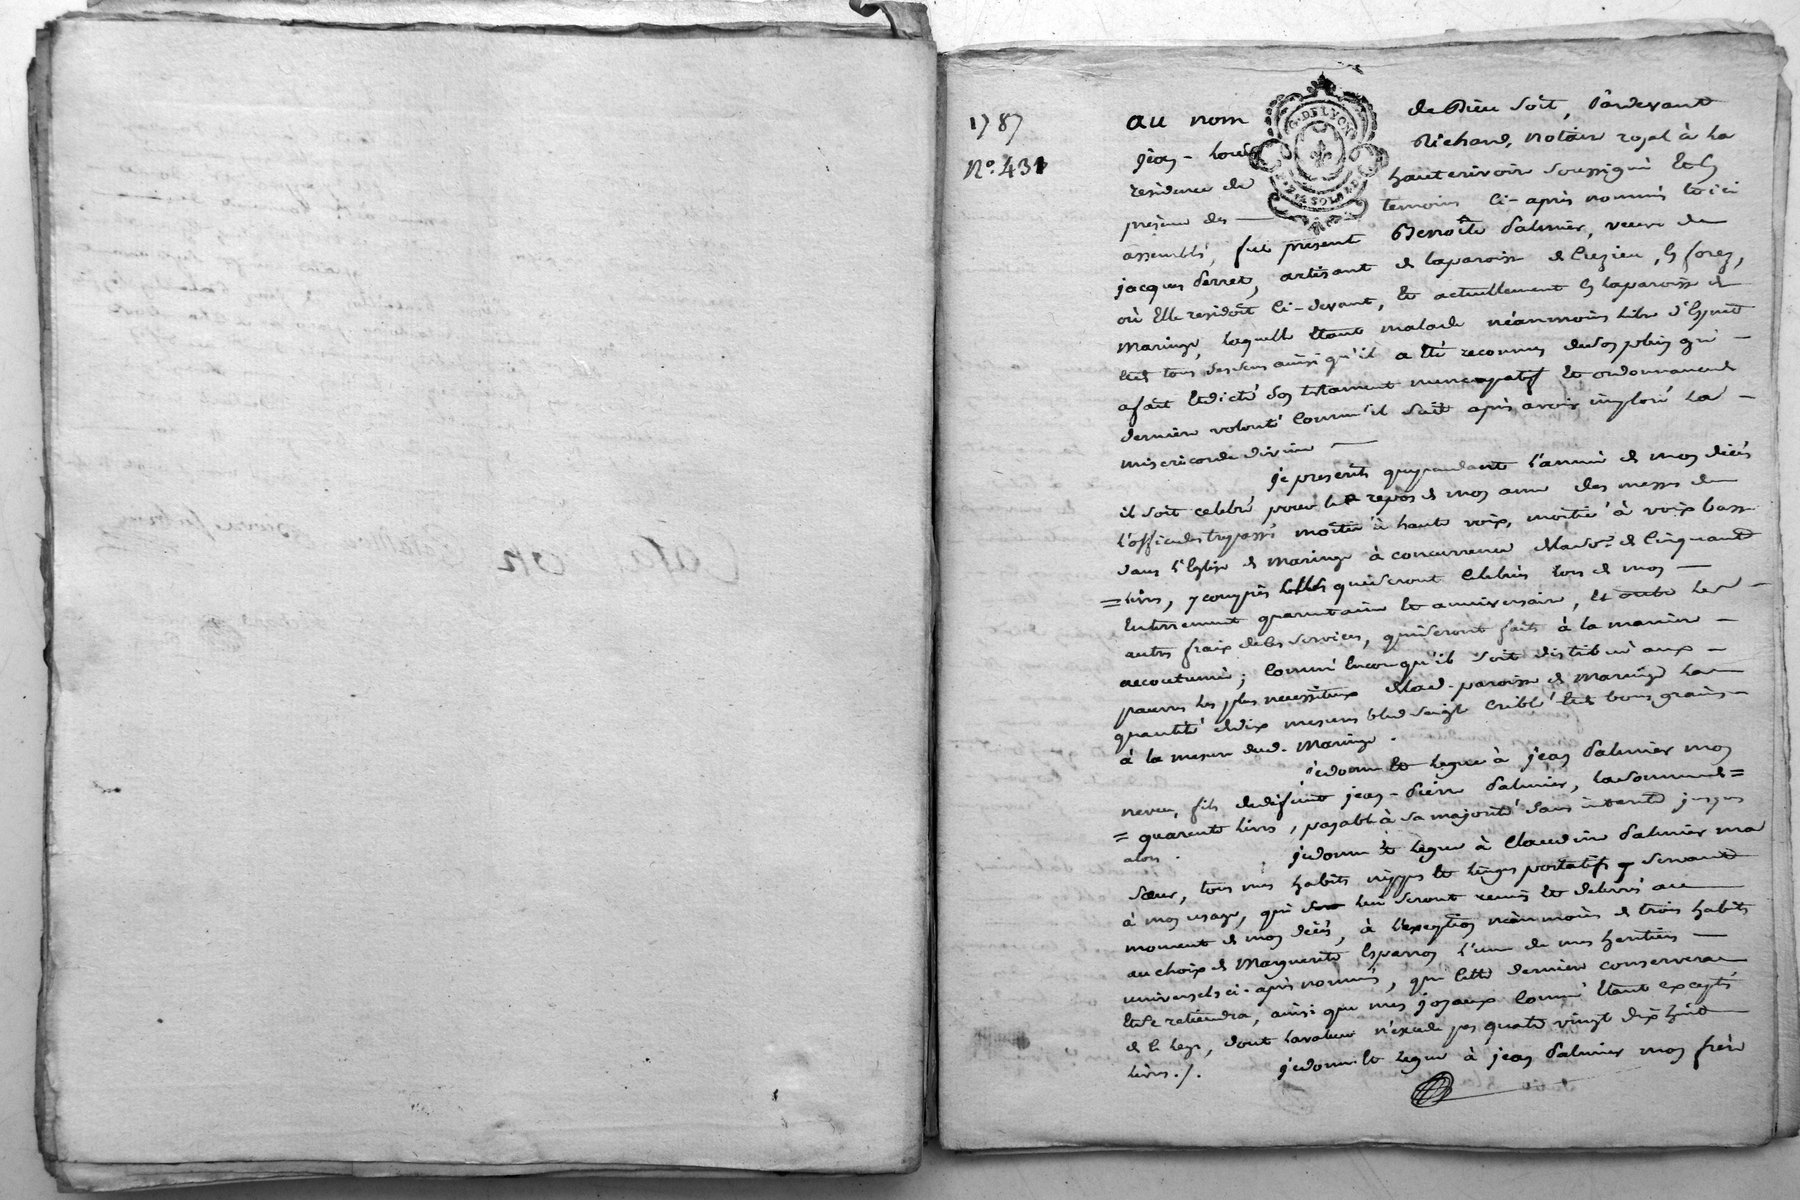 1787
N.° 431
G. DE LYON
2. S. LA SOL. 4. D.
au nom de Dieu soit, Pardevant
jean-louis Richard, notaire royal à la
residence de hauterivoire soussigné et En
presence des temoins ci-après nommés tous ici
assemblés, fut presente Benoîte Palmier, veuve de
jacques Perret, artisant de la paroisse de Cuzieu, En forez,
où Elle residoit Ci-devant, Et actuellement En la paroisse de
Maringe, laquelle Etant malade néanmoins libre d'Esprit
Et de tous ses sens ainsi qu'il a Eté reconnu de son plein gré
a fait Et dicté son testament nuncupatif Et ordonnance de
derniere volonté Comme il suit après avoir imploré La
misericorde divine
je prescrits que pendant l'année de mon décés
il soit celebré pour le repos de mon ame des messes de
l'office des trepassés moitié à haute voix, moitié à voix basse
dans l'Eglise de Maringe à concurrence de la so.e de Cinquante
= livres, y compris Celles qui seront Celebrées lors de mon
Enterrement quarantaine Et anniversaire, Et outre Les
autres fraix de les services, qui seront faits à la maniere
accoutumée; Comme Encore qu'il soit distribué aux
pauvres Les plus necessiteux de lad. paroisse de Maringe La
quantité de dix mesures bled seigle Criblé Et de bons grains
à la mesure dud. Maringe.
je donne Et Legue à jean Palmier mon
neveu, fils de défunt jean-Pierre Palmier, la somme de =
= quarente Livres, payable à sa majorité sans interets jusques
alors. je donne Et Legue à Claudine Palmier ma
sœur, tous mes habits nippes Et linges portatifs Servant
à mon usage, qui lui seront remis Et delivrés au
moment de mon décés, à l'exception néanmoins de trois habits
au choix de Marguerite Esparron l'une de mes heritiers
universels ci-après nommés, que Cette derniere conservera
Et Se retiendra, ainsi que mes joyaux Comme Etant exceptés
de Ce legs, dont la valeur n'excede pas quatre vingt dix huit
livres ./. je donne Et Legue à jean Palmier mon frère